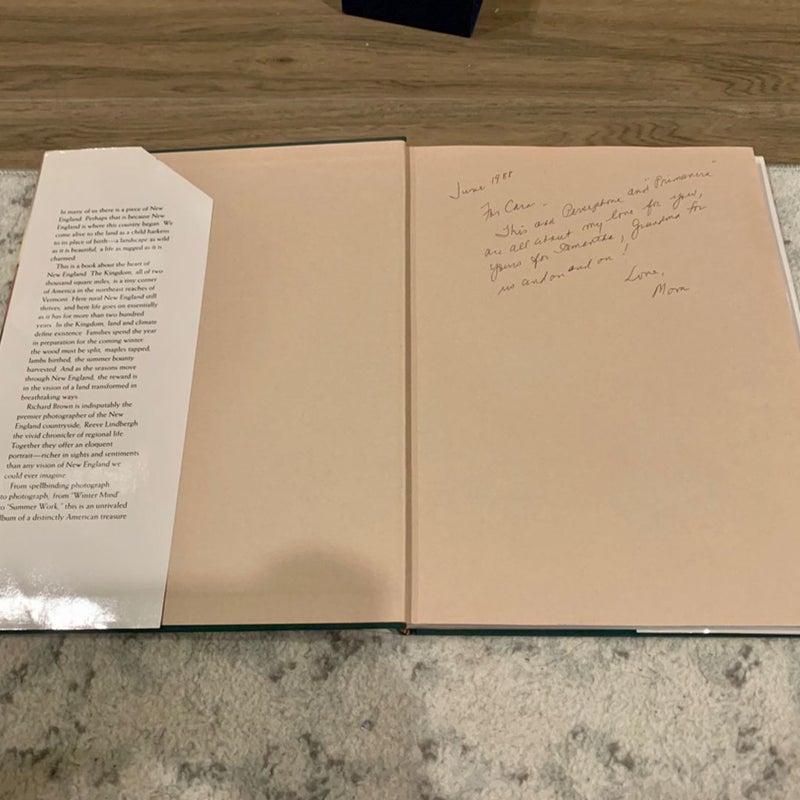 In many of us there is a piece of New
England. Perhaps that is because New
England is where this country began. We
come alive to the land as a child harkens
to its place of birth—a landscape as wild
as it is beautiful, a life as rugged as it is
charmed.
This is a book about the heart of
New England. The Kingdom, all of two
thousand square miles, is a tiny corner
of America in the northeast reaches of
Vermont. Here rural New England still
thrives, and here life goes on essentially
as it has for more than two hundred
years. In the Kingdom, land and climate
define existence. Families spend the year
in preparation for the coming winter:
the wood must be split, maples tapped,
lambs birthed, the summer bounty
harvested. And as the seasons move
through New England, the reward is
in the vision of a land transformed in
breathtaking ways.
Richard Brown is indisputably the
premier photographer of the New
England countryside, Reeve Lindbergh
the vivid chronicler of regional life.
Together they offer an eloquent
portrait—richer in sights and sentiments
than any vision of New England we
could ever imagine.
From spellbinding photograph
to photograph, from "Winter Mind"
to "Summer Work," this is an unrivaled
album of a distinctly American treasure.
June 1988
For Cara -
This and Persephone and "Primavera"
are all about my love for you,
yours for Samantha, Grandma for
us and on and on!
Love,
Mom